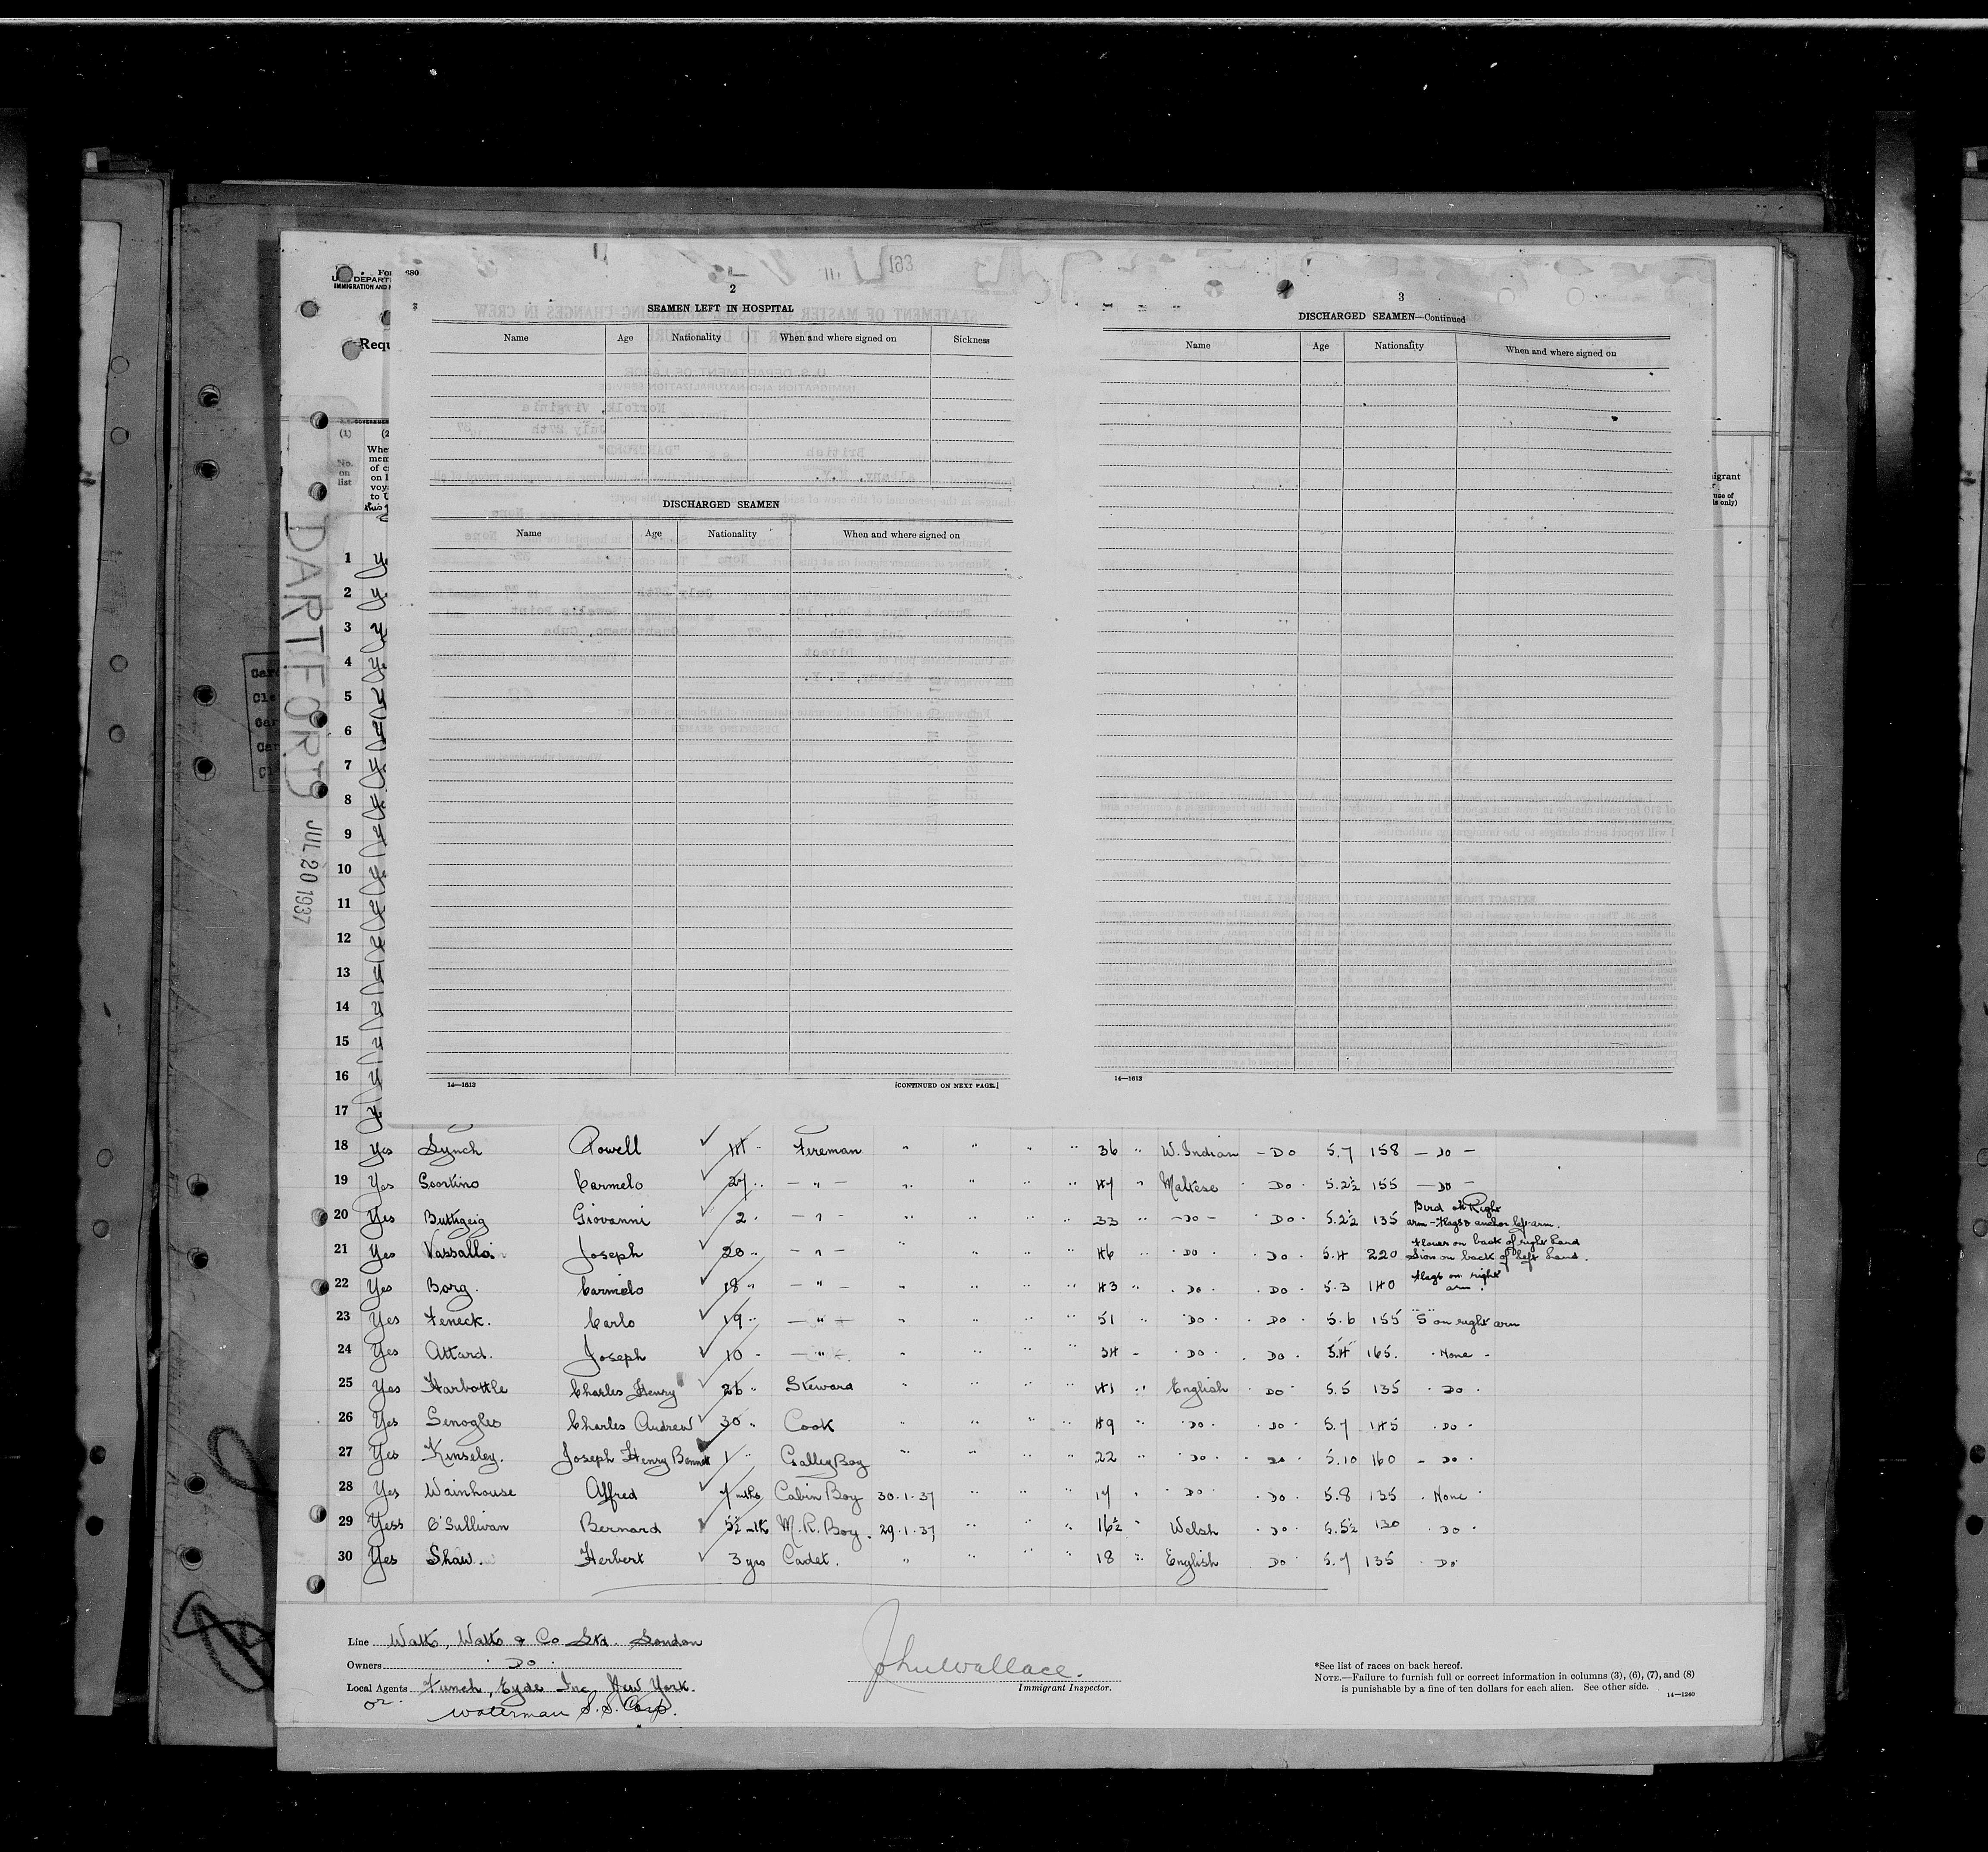 For 680
DEPART
IMMIGRATION AND
Requ
2
SEAMEN LEFT IN HOSPITAL
Name Age Nationality When and where signed on Sickness
DISCHARGED SEAMEN
Name Age Nationality When and where signed on
14—1613 [CONTINUED ON NEXT PAGE.]
193
3
DISCHARGED SEAMEN—Continued
Name Age Nationality When and where signed on
14—1613
(1) (2
No. on list
Whe
mem
of c
on l
voy
to U
DARTFORD
JUL 20 1937
1
2
3
4
5
6
7
8
9
10
11
12
13
14
15
16
17
18 Yes Lynch Powell 14 " Fireman " " " " 36 " W. Indian - Do 5.7 158 - Do -
19 Yes Scortino Carmelo 27 " - " - " " " " 47 " Maltese Do 5.2½ 155 - Do -
20 Yes Buttigeig Giovanni 2 " - " - " " " " 33 " - Do - Do 5.2½ 135 Bird on Right arm - Flags & anchor left arm.
21 Yes Vassallo Joseph 20 " - " - " " " " 46 " Do Do 5.4 220 Flower on back of right hand Lion on back of left hand.
22 Yes Borg. Carmelo 18 " - " - " " " " 43 " Do Do 5.3 140 flags on right arm.
23 Yes Feneck. Carlo 19 " - " - " " " " 51 " Do Do 5.6 155 "S" on right arm
24 Yes Attard. Joseph 10 - - " - " " " " 34 - Do Do 5.4 165. None -
25 Yes Harbottle Charles Henry 26 " Steward " " " " 41 " English Do 5.5 135 Do
26 Yes Senogles Charles Andrew 30 " Cook " " " " 49 " Do Do 5.7 145 Do
27 Yes Kinseley. Joseph Henry Bennet 1 " Galley Boy " " " " 22 " Do Do 5.10 160 - Do
28 Yes Wainhouse Alfred 7 mths Cabin Boy 30.1.37 " " " 17 " Do Do 5.8 135 None
29 Yess O'Sullivan Bernard 5½ mths M.R. Boy. 29.1.37 " " " 16½ " Welsh Do 5.5½ 130 Do
30 Yes Shaw. Herbert 3 yrs Cadet. " " " " 18 " English Do 5.7 135 Do
Line Watts, Watts & Co Ltd. London
Owners Do
Local Agents Funch, Eyde Inc, New York.
or Waterman S.S. Corp.
John Wallace.
Immigrant Inspector.
*See list of races on back hereof.
NOTE.—Failure to furnish full or correct information in columns (3), (6), (7), and (8)
is punishable by a fine of ten dollars for each alien. See other side.
14—1240